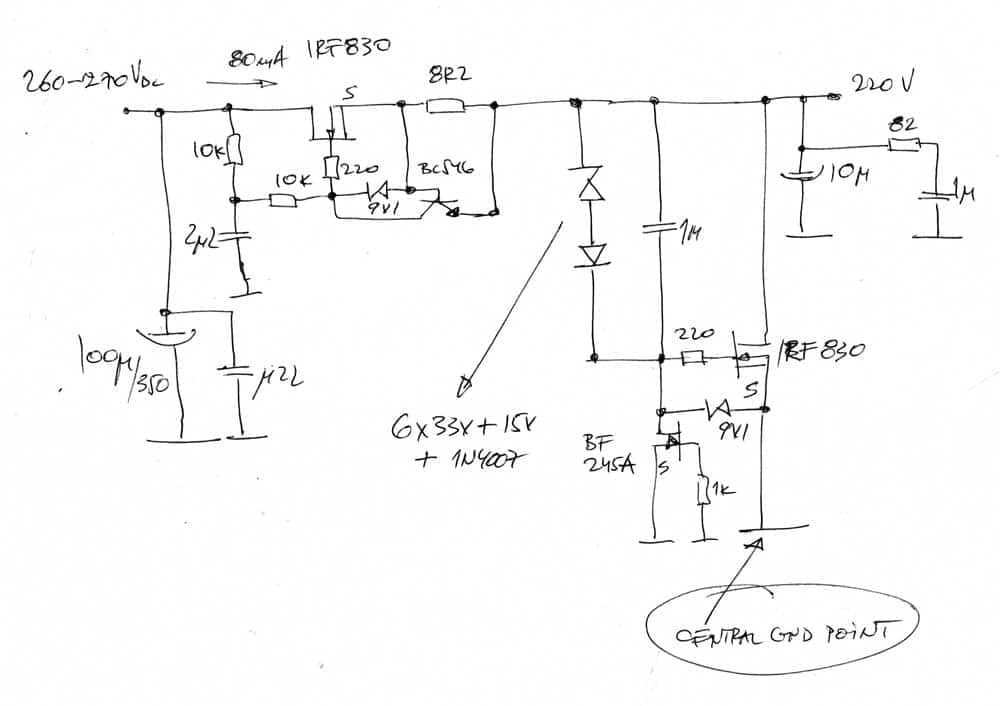 260-270VDC
80mA
IRF830
S
8R2
220V
10K
10K
220
9V1
BC546
82
10µ
1µ
2µ2
1µ
100µ/350
µ22
220
IRF830
S
9V1
6x33V+15V
+ 1N4007
BF
245A
S
1K
CENTRAL GND POINT